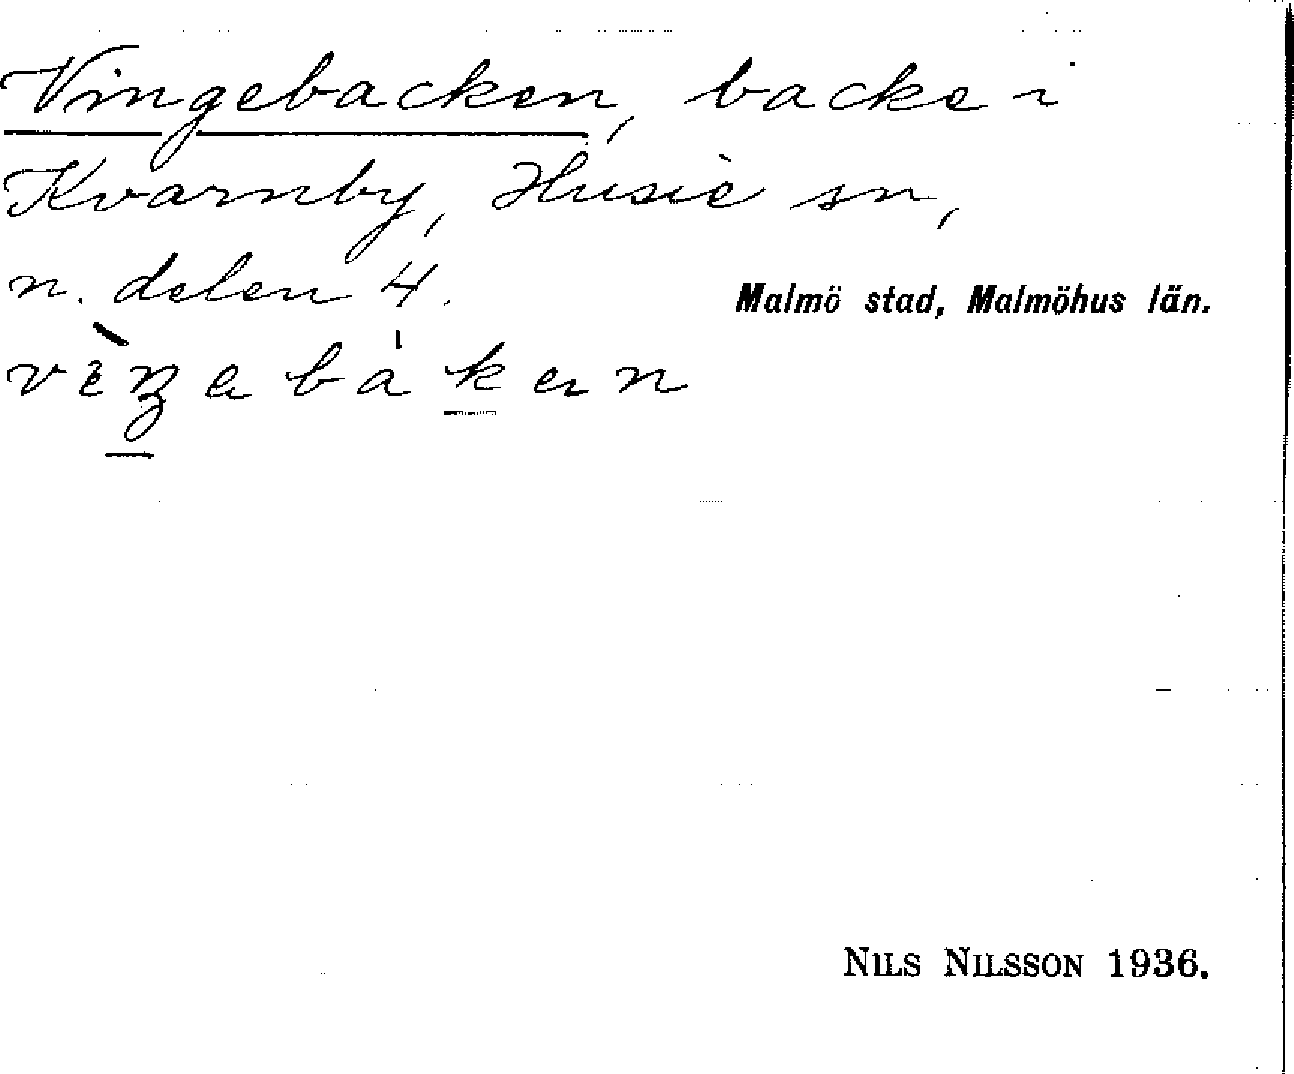 Vingebacken, backe i
Kvarnby, Husie sn,
n. delen 4.
Malmö stad, Malmöhus län.
NILS NILSSON 1936.